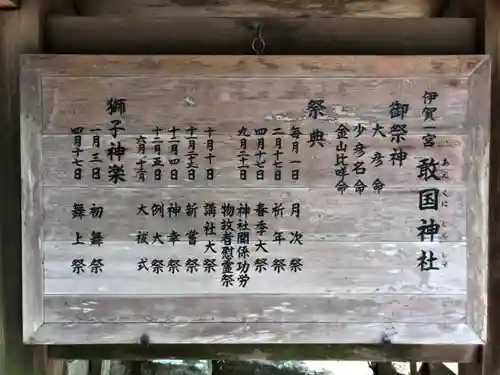 伊賀一宮 敢国神社
あえくにじんじゃ
御祭神
大彦命
少彦名命
金山比咩命
祭典
毎月一日 月次祭
二月十七日 祈年祭
四月十七日 春季大祭
九月二十日 神社関係功労
物故者慰霊祭
十月十日 講社大祭
十一月二十三日 新嘗祭
十二月四日 神幸祭
十二月五日 例大祭
大祓式
獅子神楽
一月三日 初舞祭
四月十七日 舞上祭